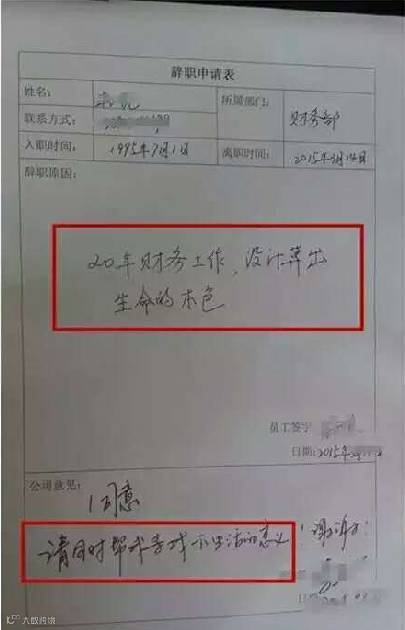 辞职申请表
姓名：
所属部门：
财务部
联系方式：
入职时间：
1995年7月1日
离职时间：
2015年3月14日
辞职原因：
20年财务工作，没计算出
生命的本色
员工签字
日期：2015年
公司意见：
同意
请同时帮我寻找下生活的意义！谢谢！
日期
大数跨境